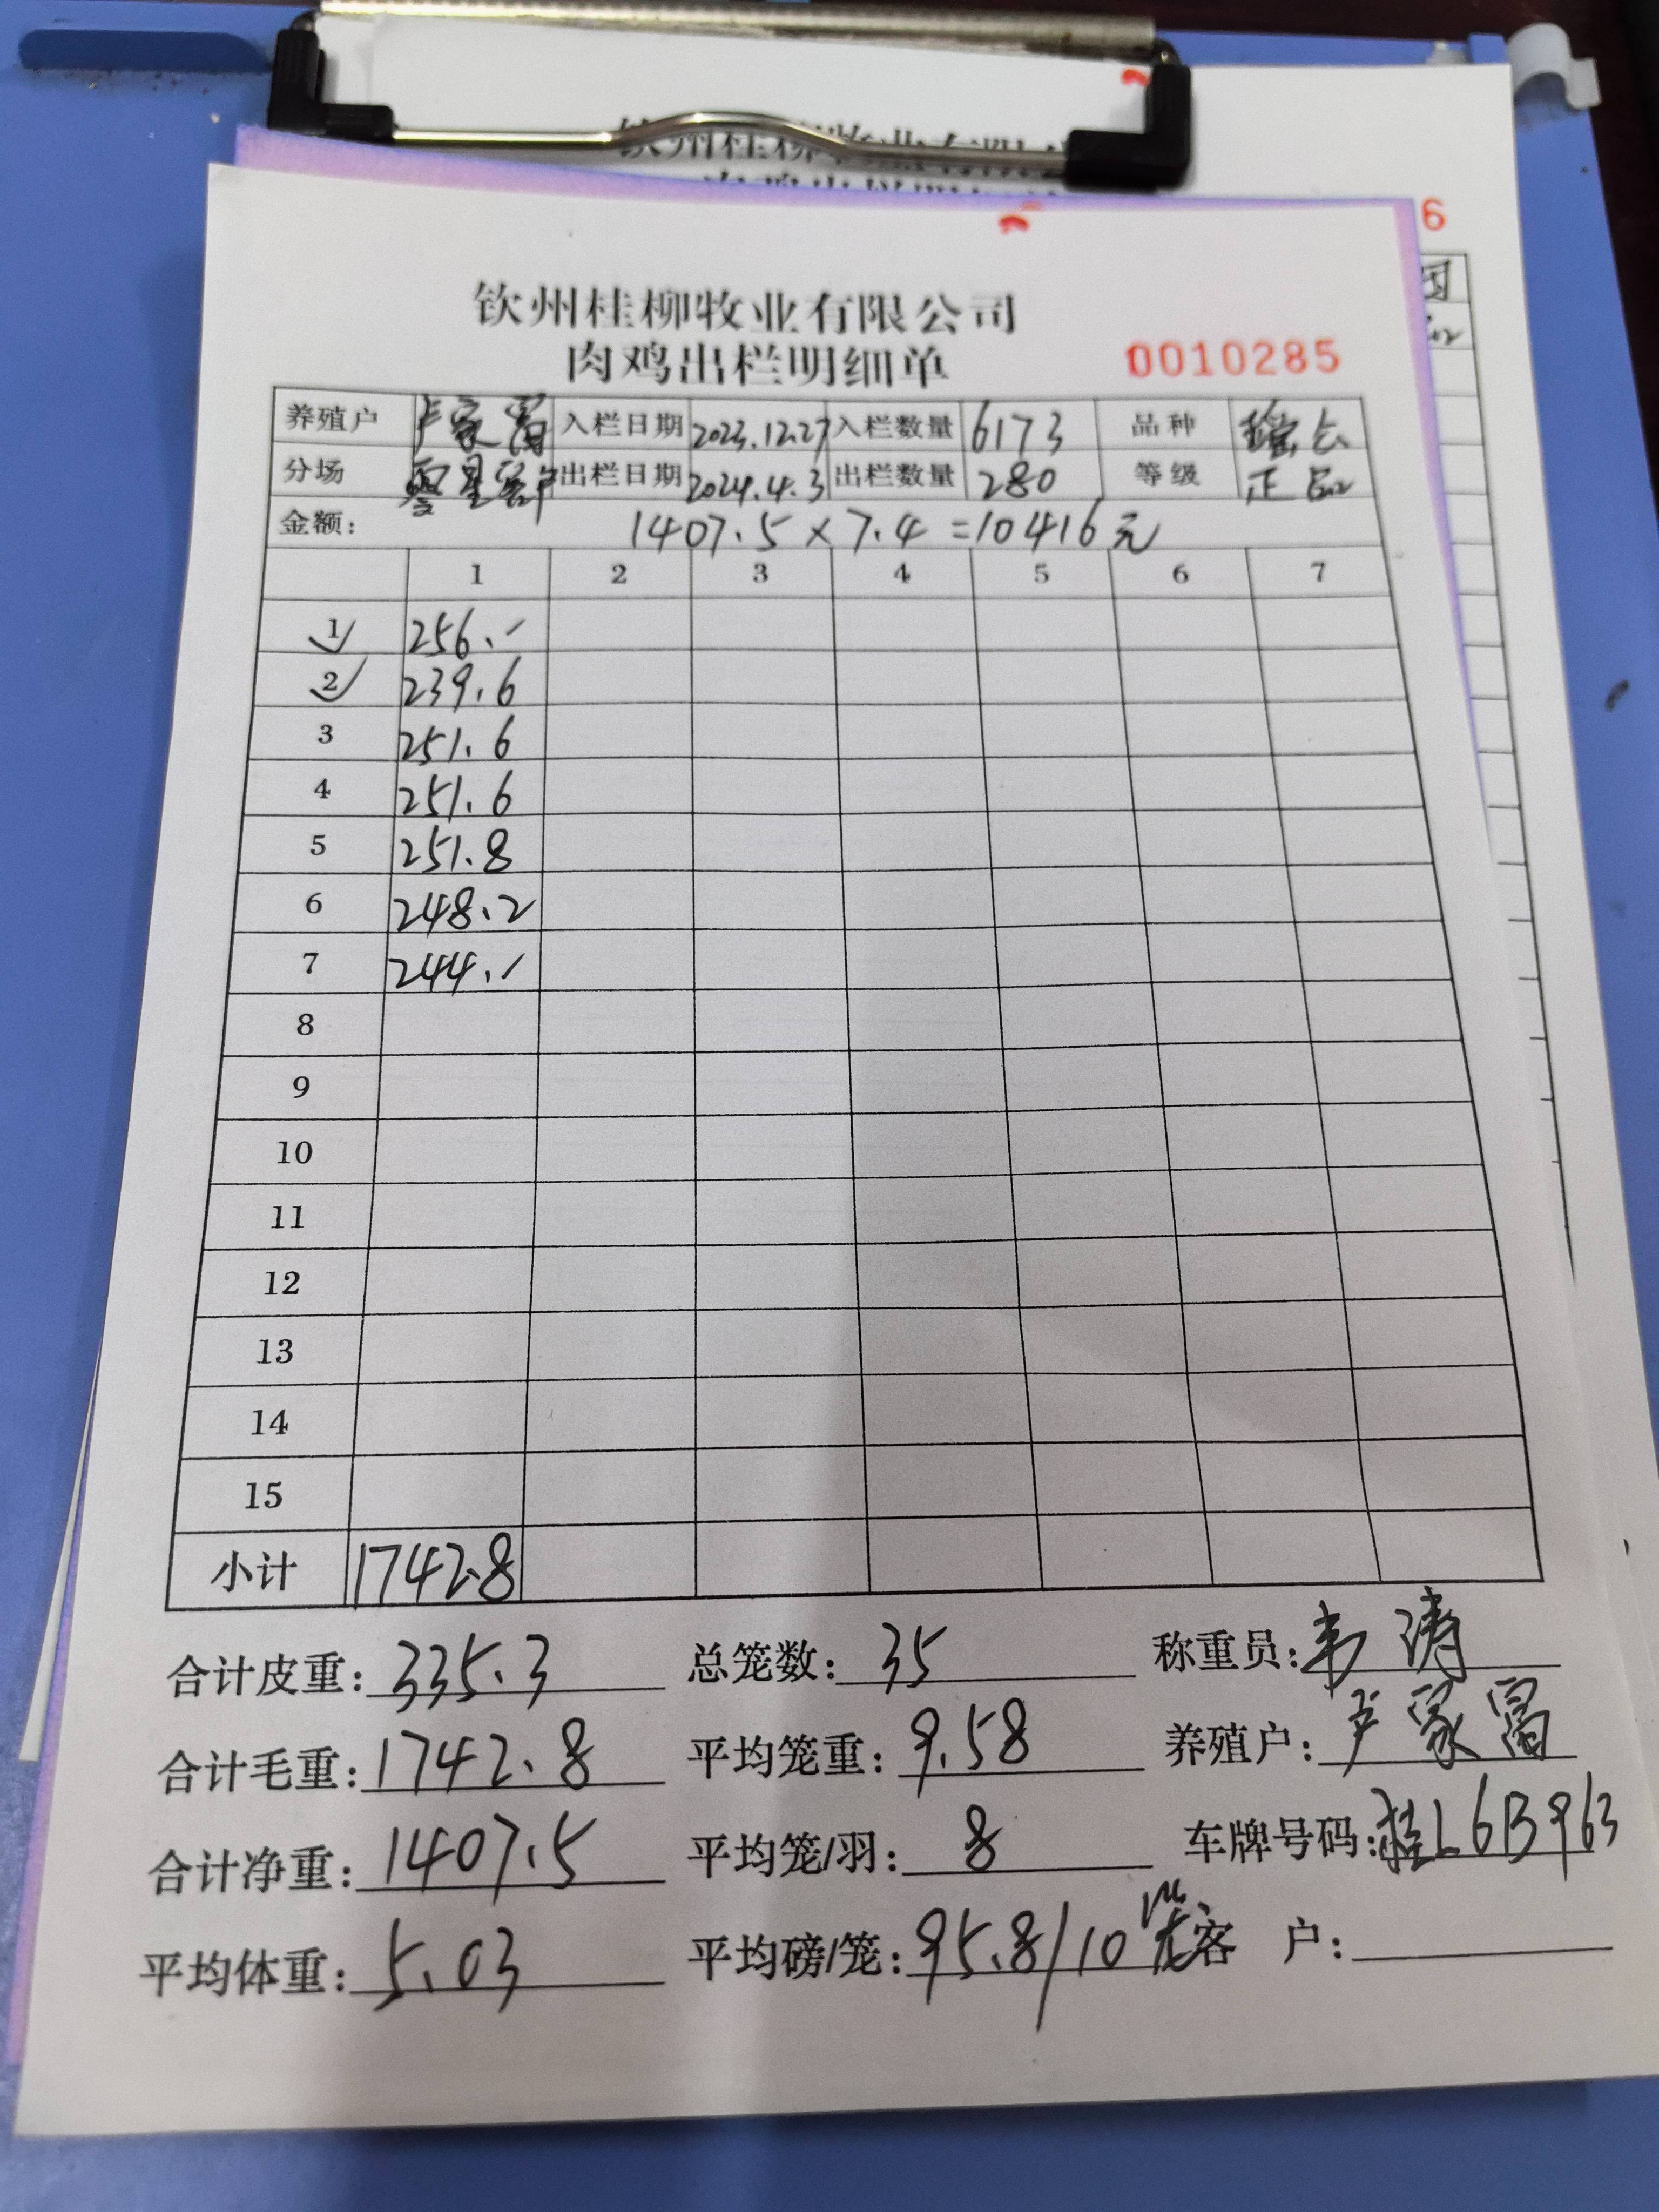 6
钦州桂柳牧业有限公司
肉鸡出栏明细单 0010285
养殖户 卢家富 入栏日期 2023.12.27 入栏数量 6173 品种
分场 零星客户 出栏日期 2024.4.3 出栏数量 280 等级 正品
金额: 1407.5 × 7.4 = 10416元
1 2 3 4 5 6 7
1 256.-
2 239.6
3 251.6
4 251.6
5 251.8
6 248.2
7 244.-
8
9
10
11
12
13
14
15
小计 1742.8
合计皮重: 335.3 总笼数: 35 称重员: 韦涛
合计毛重: 1742.8 平均笼重: 9.58 养殖户: 卢家富
合计净重: 1407.5 平均笼/羽: 8 车牌号码: 桂L6B963
平均体重: 5.03 平均磅/笼: 95.8/10 客 户: